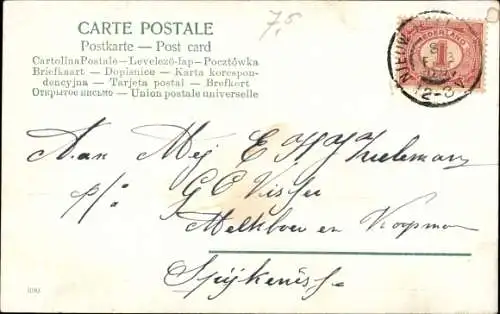 CARTE POSTALE
7,5
Postkarte — Post card
CartolinaPostale – Levelező-lap – Pocztówka
Briefkaart – Dopisnice – Karta korespon-
dencyjna – Tarjeta postal – Brefkort
Открытое письмо – Union postale universelle
NEDERLAND
1
12-3
Aan Mej E H J Zueleman
p/: G C Visser
Melkboer en Koopman
Spijkenisse